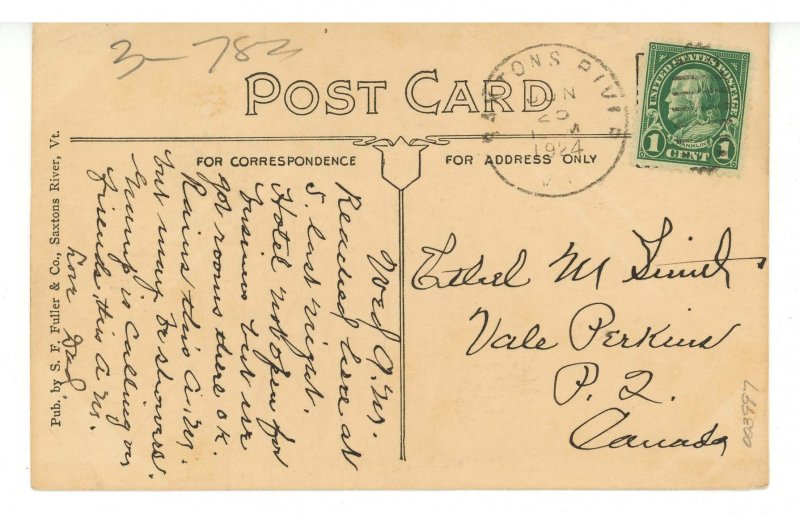 3-782
POST CARD
SAXTONS RIVER
JUN
25
M
1924
UNITED STATES POSTAGE
FRANKLIN
1 CENT 1
FOR CORRESPONDENCE
FOR ADDRESS ONLY
Wed A.M.
Reached here at
5. last night.
Hotel not open for
business but we
got rooms there ok.
Rains this A.M.
but may be showers.
Gramp is calling on
friends this A.M.
Love Dad
Ethel M Smith
Vale Perkins
P. Q.
Canada
Pub. by S. F. Fuller & Co., Saxtons River, Vt.
003997